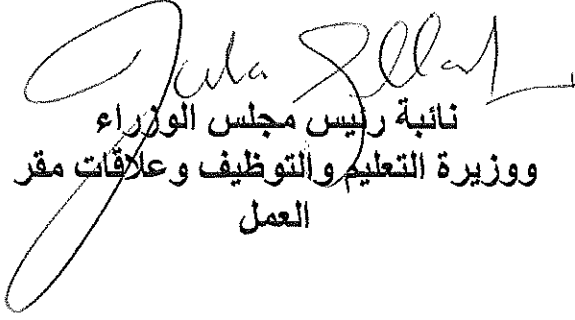 نائبة رئيس مجلس الوزراء
ووزيرة التعليم والتوظيف وعلاقات مقر
العمل